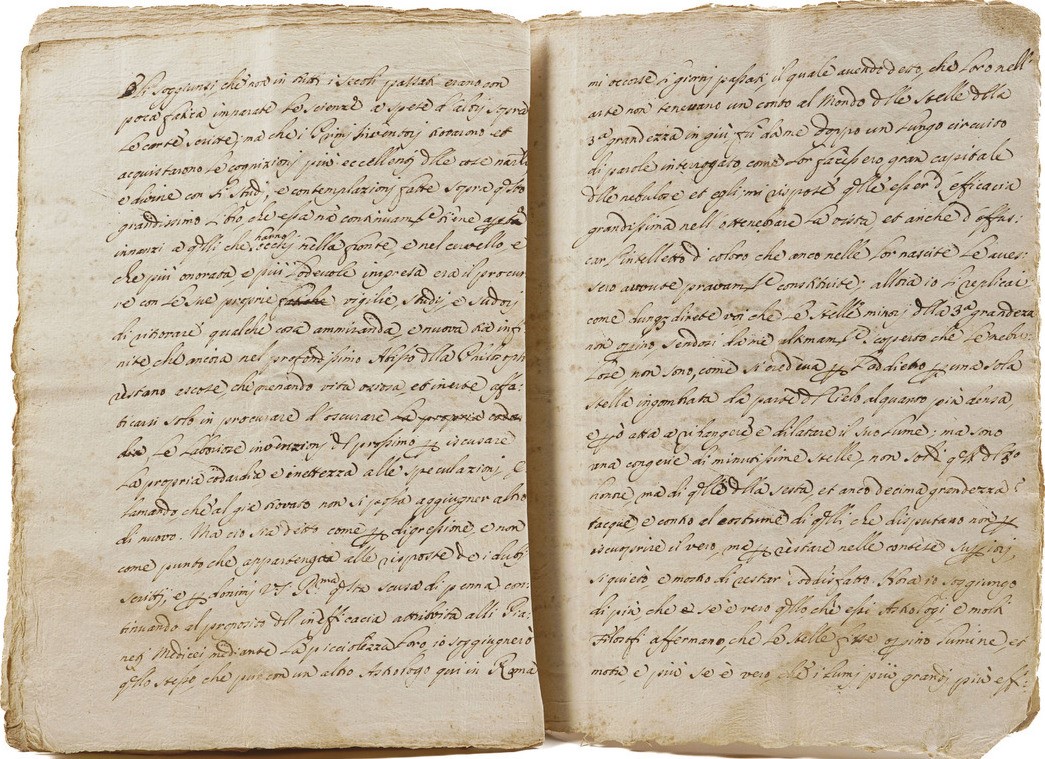 Soggiunsi che non in tutti i secoli passati erano con
poca fatica imparate le scienze a spese altrui sopra
le carte scritte; ma che i Primi Inventori trovarono et
acquistarono le cognizioni più eccellenti delle cose
e divine con gli studi, e contemplazioni fatte sopra questo
grandissimo libro che essa natura continuamente tiene aperto
innanzi a quelli che hanno occhi nella fronte, e nel cervello, e
che più onorata, e più lodevole impresa era il procura
re con le sue proprie vigilie studij, e sudori
di ritrovare qualche cosa ammiranda, e nuova tra infi
nite che ancora nel profondissimo Abisso della Philosoph
restano ascose, che menando vita oziosa, et inerte affa:
ticarsi solo in procurare d'oscurare
le laboriose invenzioni del prossimo iscusare
la propria codardia e inettezza alle speculazioni, e
lamando, che al già trovato non si possa aggiugner altro
di nuovo. Ma ciò sia detto come digressione, e non
come punto che appartenga alle risposte de i dubi
scritti, e domini V.S. questa scusa di penna con:
tinuando al proposito dell inefficacia attribuita alli Pia:
neti Medicei mediante la picciolezza loro, io soggiugnerò
quello stesse, che pur con un altro Astrologo qui in Roma
mi occorse i giorni passati, il quale avendo detto, che loro nell'
arte non tenevano un conto al Mondo delle stelle della
3ª grandezza in giù, fù da me doppo un lungo circuito
di parole interrogato, come lor facessero gran capitale
delle nebulose et egli mi rispose quelle esser d'efficacia
grandissima nell'ottenebrare la vista, et anche d'offus:
car l'intelletto di coloro che anco nelle lor nascite le aves:
sero avute constituite; allora io li replicai
come dunque direte voi che le stelle minori della 3ª grandezza
non oprino, sendosi da me ultimamente scoperto che le nebu:
lose non sono, come si credeva per l'addietro una sola
stella ingombrata da parte del Cielo alquanto più densa,
e però atta a rifrangere e dilatare il suo lume; ma sono
una congerie di minutissime stelle, non solo di
honore, ma di quelle della sesta, et anco decima grandezza?
tacque, e contro al costume di quelli che disputano non per
iscuoprire il vero, ma per restare nelle contese superiori,
si quietò e mostrò di restar soddisfatto. Hora io soggiungo
di più, che se è vero quello che essi Astrologi e molti
Filosofi affermano, che le stelle fisse oprino lumine, et
motu, e più se è vero che i lumi più grandi più effi: